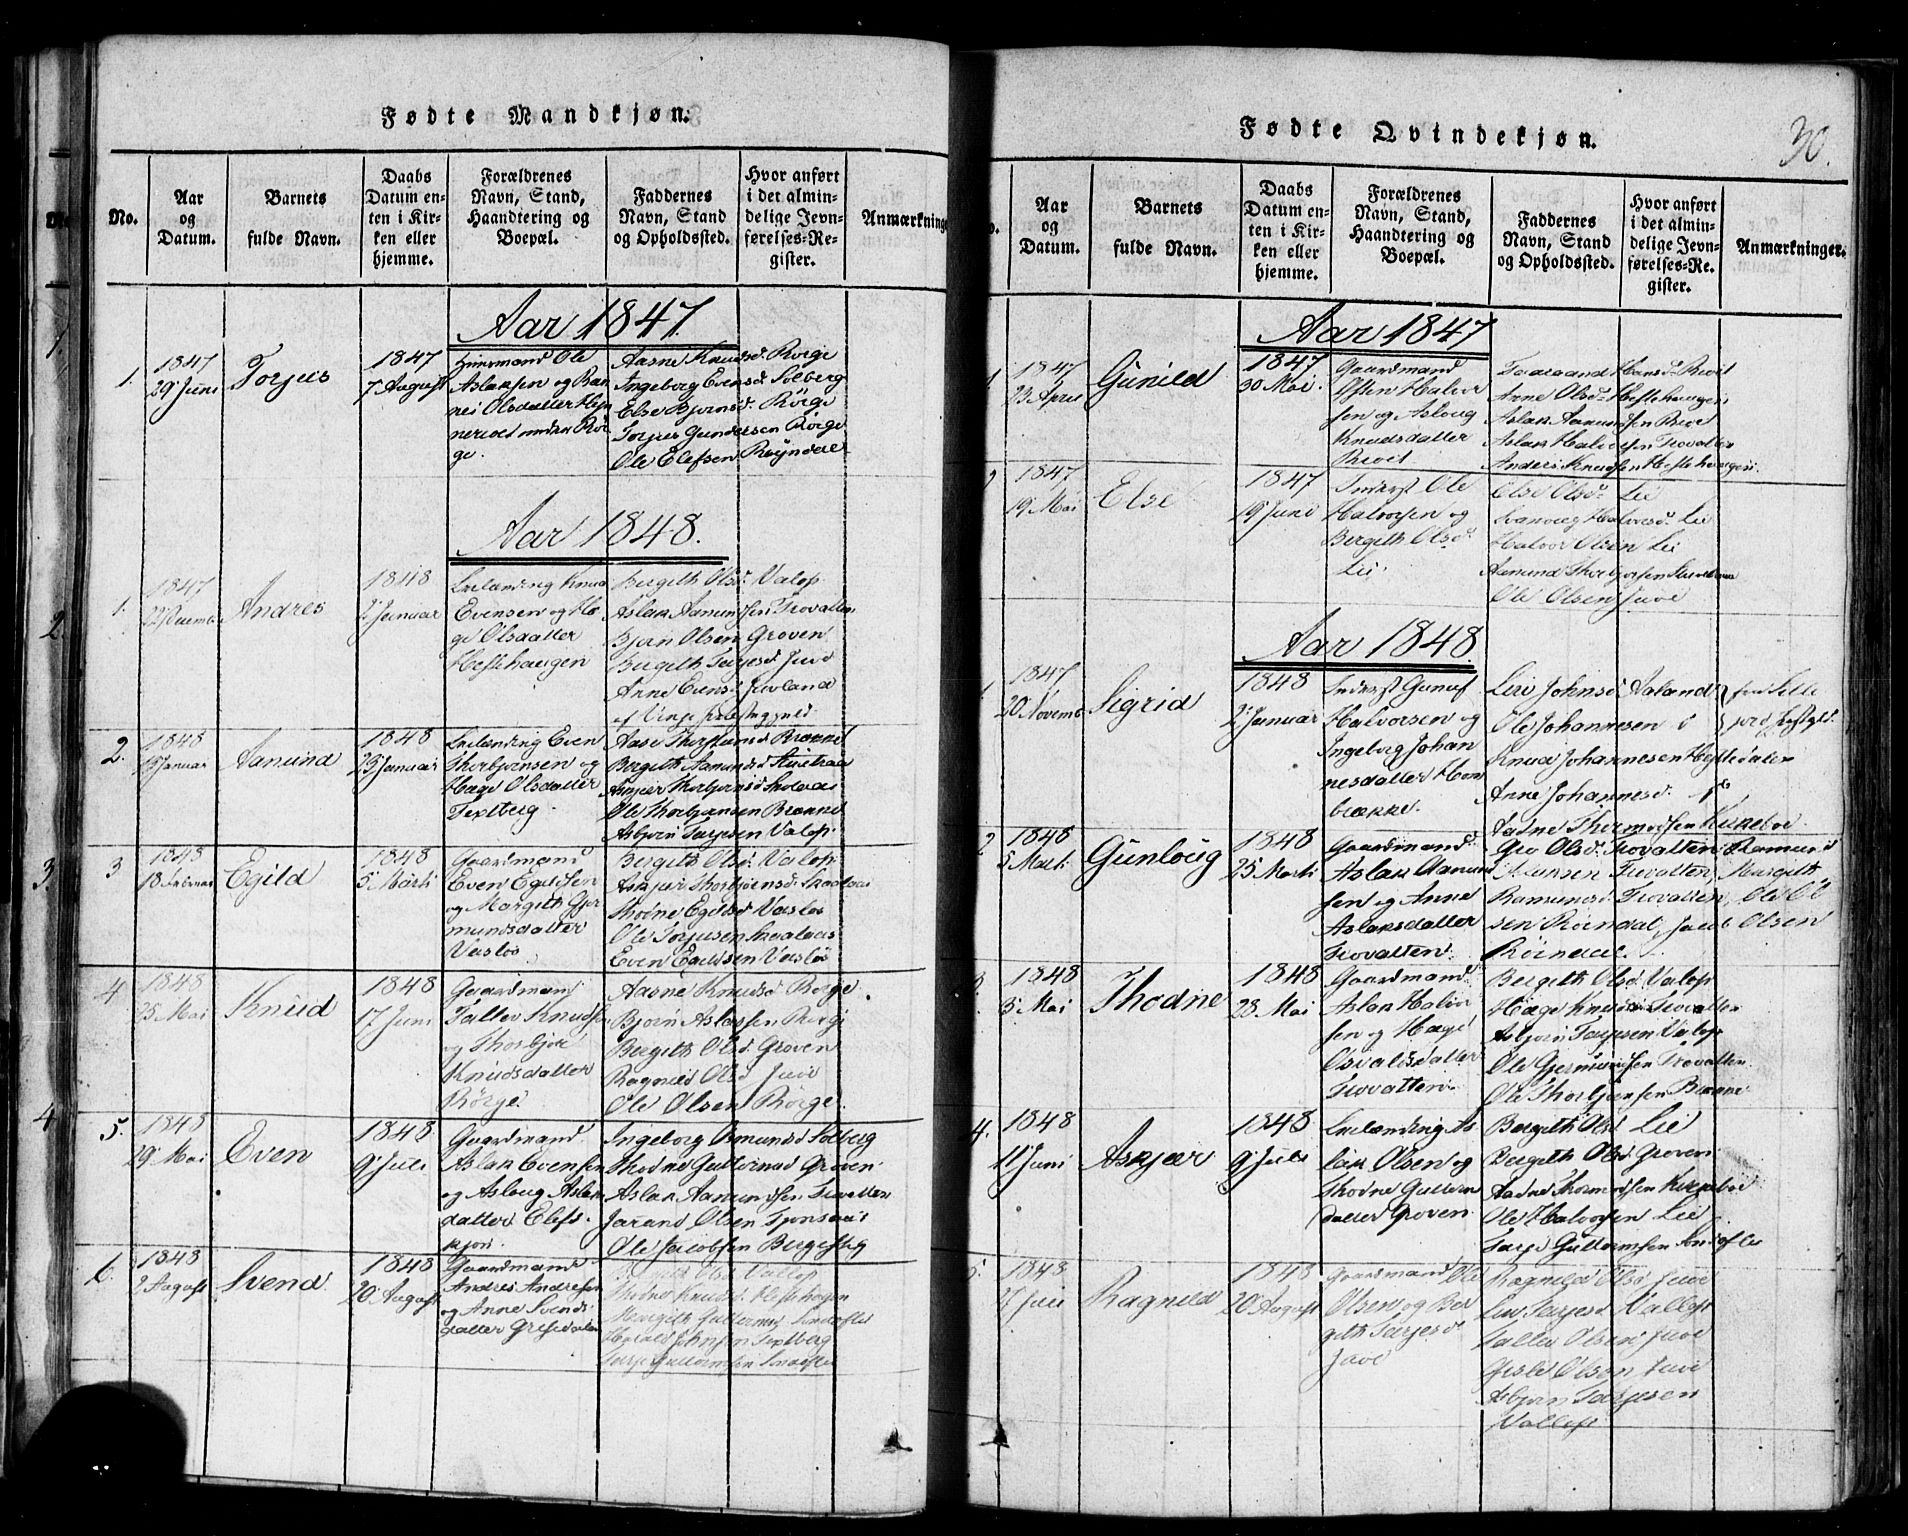 Fødte Mandkjøn.
No.
Aar
og
Datum.
Barnets
fulde Navn.
Daabs
Datum en-
ten i Kir-
ken eller
hjemme.
Forældrenes
Navn, Stand,
Haandtering og
Boepæl.
Faddernes
Navn, Stand
og Opholdssted.
Hvor anført
i det almin-
delige Jevn-
førelses-Re-
gister.
Anmærkninge
Aar 1847.
1.
1847
29 Juni
Torjus
1847
7 August
Huusmand Ole
Aslaksen og
Olsdatter
under Rør
ge.
Aasne Knudsd. Rørge
Ingeborg Evensd Solberg
Else Bjørnsd. Rørge
Torjus Gundersen Rørge
Ole Elefsen Røyndal
Aar 1848.
1.
1847
Andres
1848
2 Januar
Leilænding Knud
Evensen og Hæ
ge Olsdatter
Heftehaugen
Bergith Olsd. Valop
Aslak Aamundsen Trovatten
Bjørn Olsen Groven
Bergith Tarjesd Juve
Anne Evensd Juvland
af Vinje
2.
1848
Januar
Aamund
1848
23 Januar
Leilænding Even
Thorbjørnsen og
Hæge Olsdatter
Textberg
Aase Thorsteinsd Brænne
Bergith Aamundsd
Askjær Thorbjørnsd Skolaas
Ole Thorbjørnsen Brænne
Asbjørn Tarjesen Valop.
3
1848
18 Februar
Egild
1848
5 Marti
Gaardmand
Even Egildsen
og Margith Gjer
mundsdatter
Vasløs
Bergith Olsd. Valop
Askjær Thorbjørnsd. Skaalaas
Thodne Egildsd Vasløs
Ole Torjusen Skaalaas
Even Egildsen Vasløs
4
1848
25 Mai
Knud
1848
17 Juni
Gaardmand
Tallev Knudsen
og Thorbjør
Knudsdatter
Rørge.
Aasne Knudsd Rørge
Bjørn Aslaksen Rørge
Bergith Olsd. Groven
Ragnild Olsd Juve
Ole Olsen Rørge.
5.
1848
29 Mai
Even
1848
9 Juli
Gaardmand
Aslak Evensen
og Asloug Aslak
datter Elefs
kjøn.
Ingeborg Osmundsd Solberg
Thodne Guttormsd Groven
Aslak Aamundsen Trovatten
Jarand Olsen
Ole Jacobsen
6.
1848
2 August
Svend
1848
20 August
Gaardmand
Andres Andresen
og Anne Svends
datter
Olsd Vallop
Thodne Knudsd Heftehaugen
Margith Guttormsd
Johnsen Textberg
Tarje Guttormsen
Fødte Qvindekjøn.
30.
Aar
og
Datum.
Barnets
fulde Navn.
Daabs
Datum en-
ten i Kir-
ken eller
hjemme.
Forældrenes
Navn, Stand,
Haandtering og
Boepæl.
Faddernes
Navn, Stand
og Opholdssted.
Hvor anført
i det almin-
delige Jevn-
førelses-Re-
gister.
Anmærkninger.
Aar 1847
1.
1847
23 April
Gunild
1847
30 Mai.
Gaardmand
Halvor
sen og Asloug
Knudsdatter
Hansd.
Anne Olsd. Heftehaugen
Aslak Aamundsen
Aslak Halvorsen Trovatten
Anders Knudsen Heftehaugen
2
1847
19 Mai
Else
1847
19 Juni
Inderst Ole
Halvorsen og
Bergith Olsd.
Lii.
Else Olsd. Lii
Svanoug Halvorsd. Lii
Halvor Olsen Lii
Aamund Thorbjørnsen
Ole Olsen Juve
Aar 1848.
1
1847
20 Novemb
Sigrid
1848
2 Januar
Inderst Gunuf
Halvorsen og
Ingeborg Johan
nesdatter Hom
brække.
Liv Johnsd Aaland
Ole Johannesen
Knud Johannesen Hefte
Anne Johannesd.
Aadne Thormodsen
fra Sille
jord
2
1848
5 Marti
Gunloug
1848
25 Marti
Gaardmand
Aslak Aamund
sen og Anne
Aslaksdatter
Trovatten
Gro Olsd. Trovatten, Aamund
Trovatten, Margith
Aamundsd. Trovatten, Ole Ol
sen Røindal, Jacob Olsen
Røindal.
3.
1848
5 Mai
Thodne
1848
28 Mai
Gaardmand
Aslak Halvor
sen og Hæge
Osvaldsdatter
Trovatten.
Bergith Olsd. Valop
Hæge Knudsd. Trovatten
Asbjørn Tarjesen Valop
Ole Gjermundsen Trovatten
Ole Thorbjørnsen Brænne
4.
1848
11 Juni
Askjær
1848
9 Juli
Leilænding As
lak Olsen og
Thodne Guttorms
datter Groven
Bergith Olsd Lii
Bergith Olsd Groven
Aadne Thormodsen
Ole Halvorsen Lii
Tarje Guttormsen
5.
1848
7 Juli
Ragnild
1848
20 August
Gaardmand Ole
Olsen og Ber
gith Tarjesd.
Juve
Ragnild Olsd Juve
Liv Tarjesd Valloft
Tallev Olsen Juve
Gisle Olsen Juve
Asbjørn Tarjesen
Valloft
1.
2
3.
4